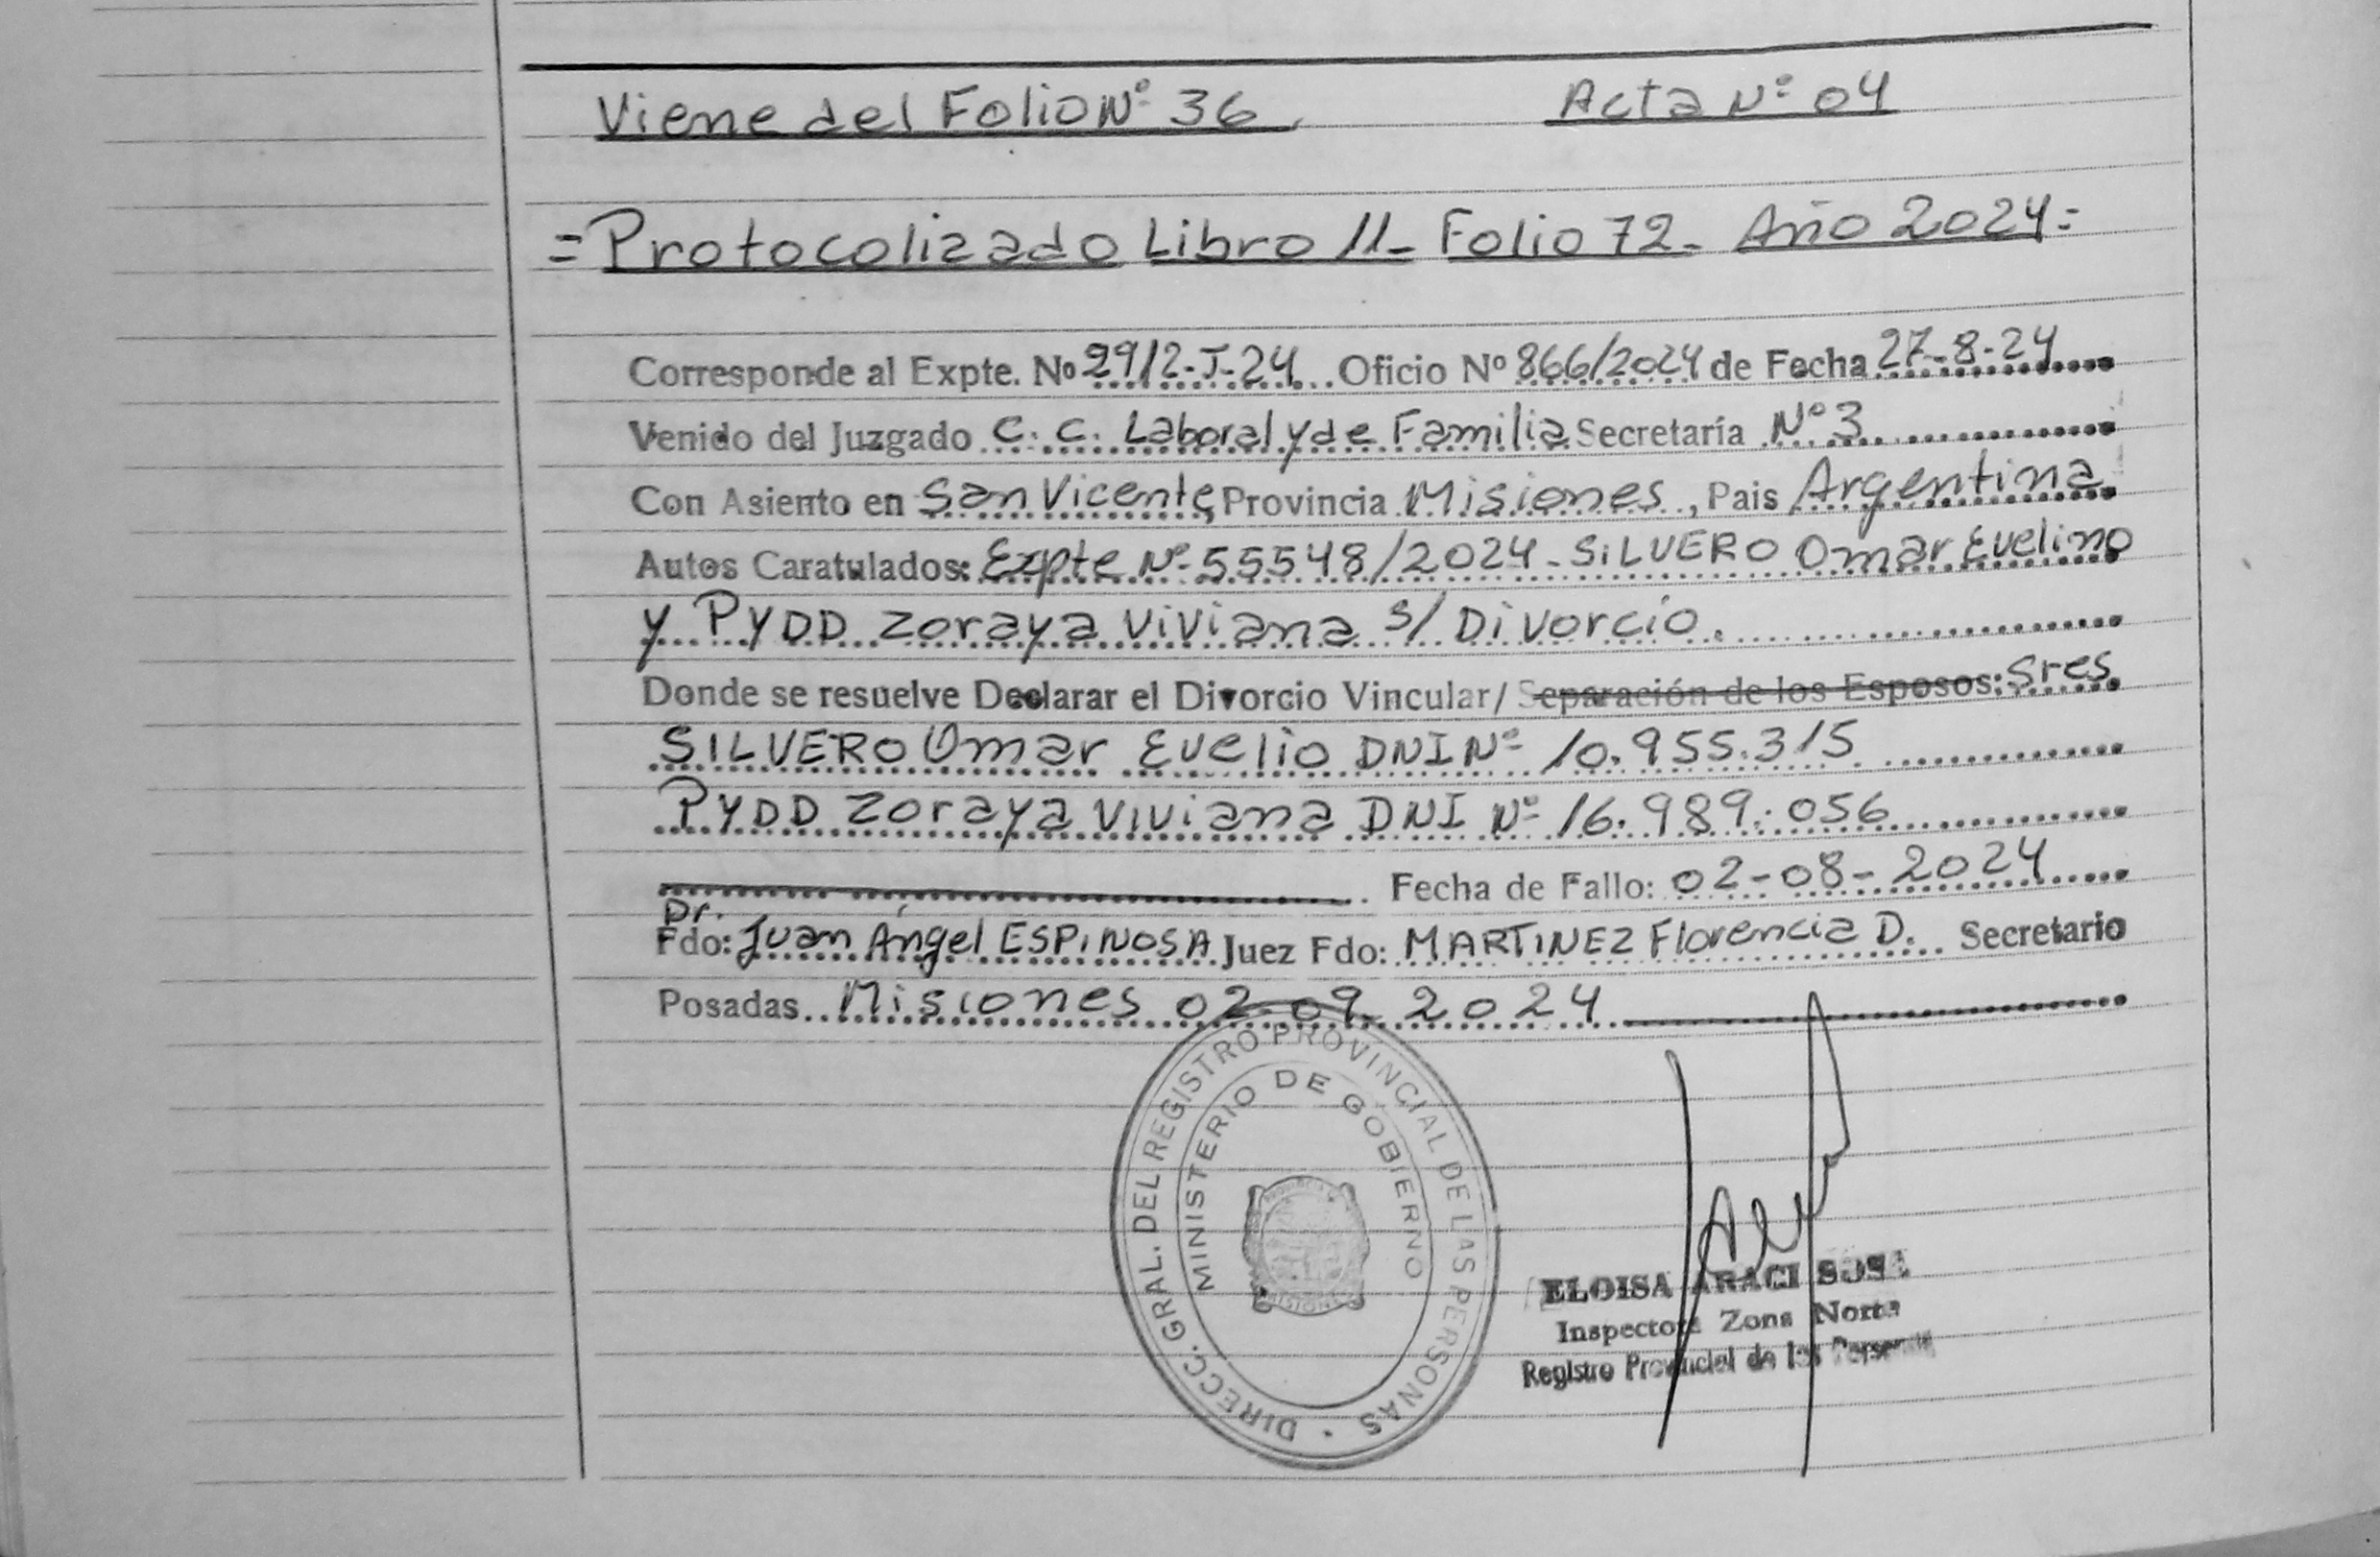 Viene del Folio Nº 36. Acta Nº 04
= Protocolizado Libro 11- Folio 72- Año 2024=
Corresponde al Expte. Nº 2912-J-24 Oficio Nº 866/2024 de Fecha 27-8-24
Venido del Juzgado C. C. Laboral y de Familia Secretaría Nº 3
Con Asiento en San Vicente, Provincia Misiones, Pais Argentina.
Autos Caratulados: Expte Nº 55548/2024 - SILVERO Omar Evelino
y PYDD Zoraya Viviana S/ Divorcio.
Donde se resuelve Declarar el Divorcio Vincular/ Separación de los Esposos: Sres.
SILVERO Omar Evelio DNI Nº 10.955.315
PYDD Zoraya Viviana DNI Nº 16.989.056
Fecha de Fallo: 02-08-2024
Dr.
Fdo: Juan Ángel ESPINOSA Juez Fdo: MARTINEZ Florencia D. Secretario
Posadas Misiones 02-09-2024
DIRECC. GRAL. DEL REGISTRO PROVINCIAL DE LAS PERSONAS
MINISTERIO DE GOBIERNO
MISIONES
ELOISA ARACI SOSA
Inspectora Zona Norte
Registro Provincial de las Personas